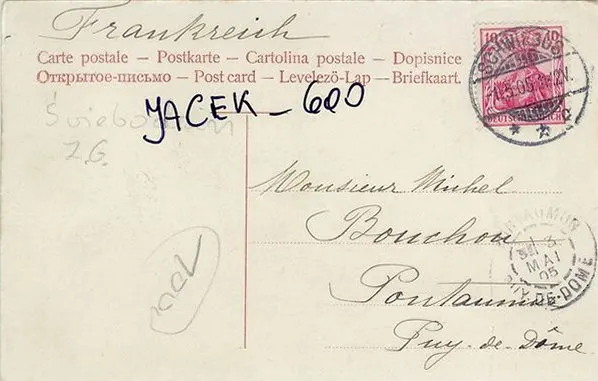 Frankreich
Carte postale — Postkarte — Cartolina postale — Dopisnice
Открытое-письмо — Post card — Levelező-Lap — Briefkaart.
JACEK - 600
10 10
DEUTSCHES REICH
SCHWIEBUS
1.5.05.
Świebodzin
Z.G.
Monsieur Michel
Bouchon
Pontaumur
Puy-de-Dôme
PONTAUMUR
3
MAI
05
PUY-DE-DÔME